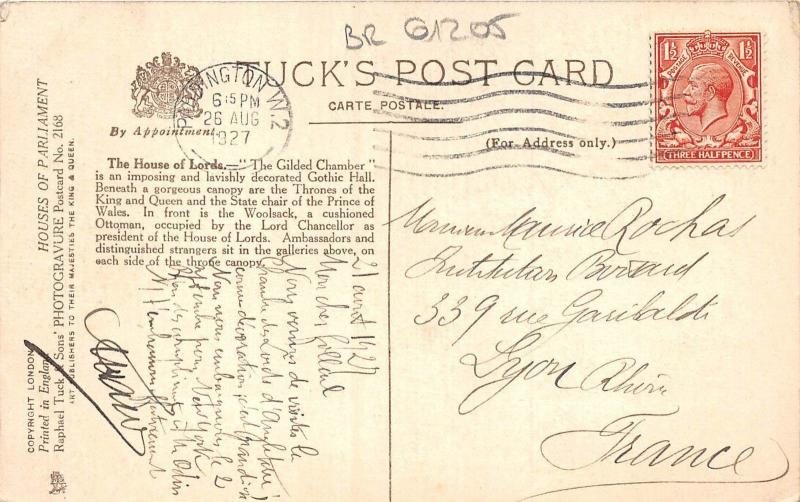 BR G1205
TUCK'S POST CARD
CARTE POSTALE.
By Appointment
PADDINGTON. W.2
6 15 PM
26 AUG
1927
POSTAGE REVENUE
1½ 1½
THREE HALFPENCE
(For Address only.)
The House of Lords.—"The Gilded Chamber"
is an imposing and lavishly decorated Gothic Hall.
Beneath a gorgeous canopy are the Thrones of the
King and Queen and the State chair of the Prince of
Wales. In front is the Woolsack, a cushioned
Ottoman, occupied by the Lord Chancellor as
president of the House of Lords. Ambassadors and
distinguished strangers sit in the galleries above, on
each side of the throne canopy.
HOUSES OF PARLIAMENT
Raphael Tuck & Sons' PHOTOGRAVURE Postcard No. 2168
ART PUBLISHERS TO THEIR MAJESTIES THE KING & QUEEN.
COPYRIGHT LONDON
Printed in England
21 août 1927
Mon cher
Nous venons de visiter la
chambre des Lords d'Angleterre
comme décoration, c'est grandiose
Nous nous embarquons le 2
septembre pour New York
Monsieur Maurice Rochas
339 rue Garibaldi
Lyon Rhône
France